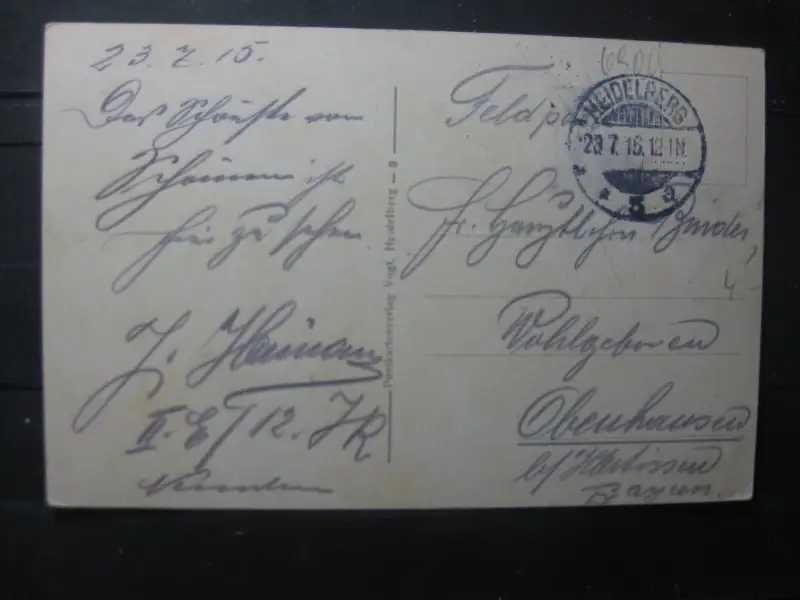 23.7.15.
Das Schönste vom
Schönen ist
hier zu sehen
J. Heimann
II. E/12. JR
Postkartenverlag Vogt, Heidelberg – 9
6900
Feldpost
HEIDELBERG
23.7.15.12-1N.
* 5 a
Fr. Hauptlehrer
4-
Wohlgeboren
Obenhausen
b/ Illertissen
Bayern.